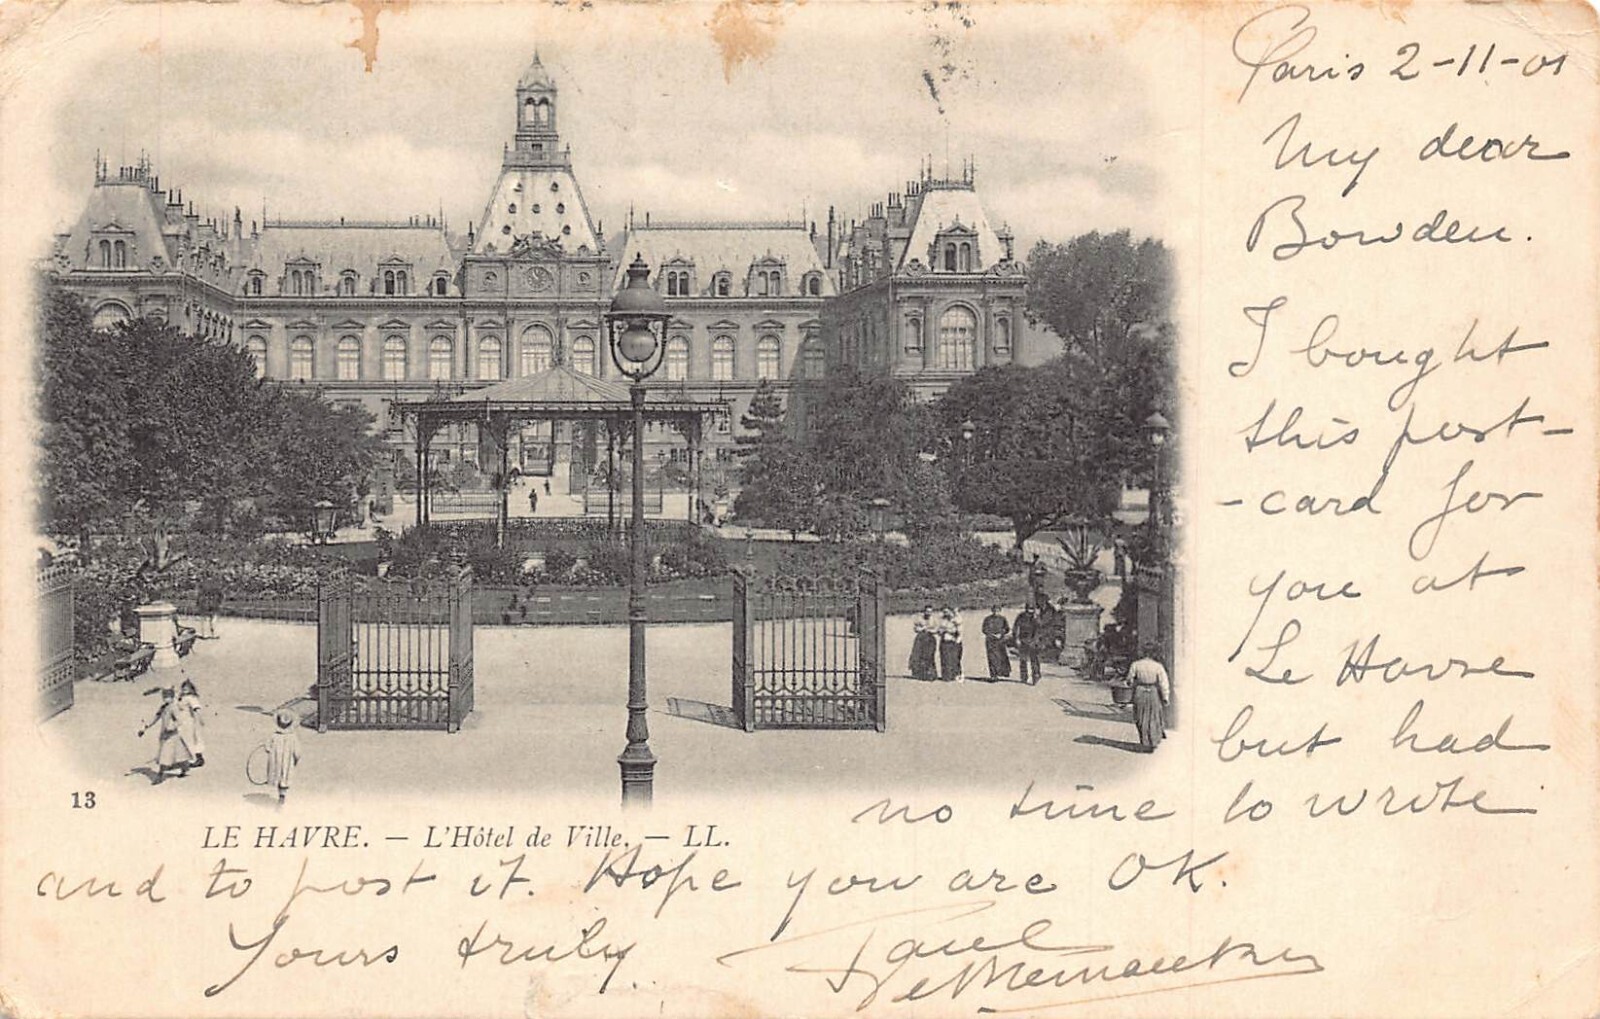 Paris 2-11-01
My dear
Bowden.
I bought
this post-
-card for
you at
Le Havre
but had
no time to write
and to post it. Hope you are OK.
Yours truly.
Paul
13
LE HAVRE. — L'Hôtel de Ville. — LL.